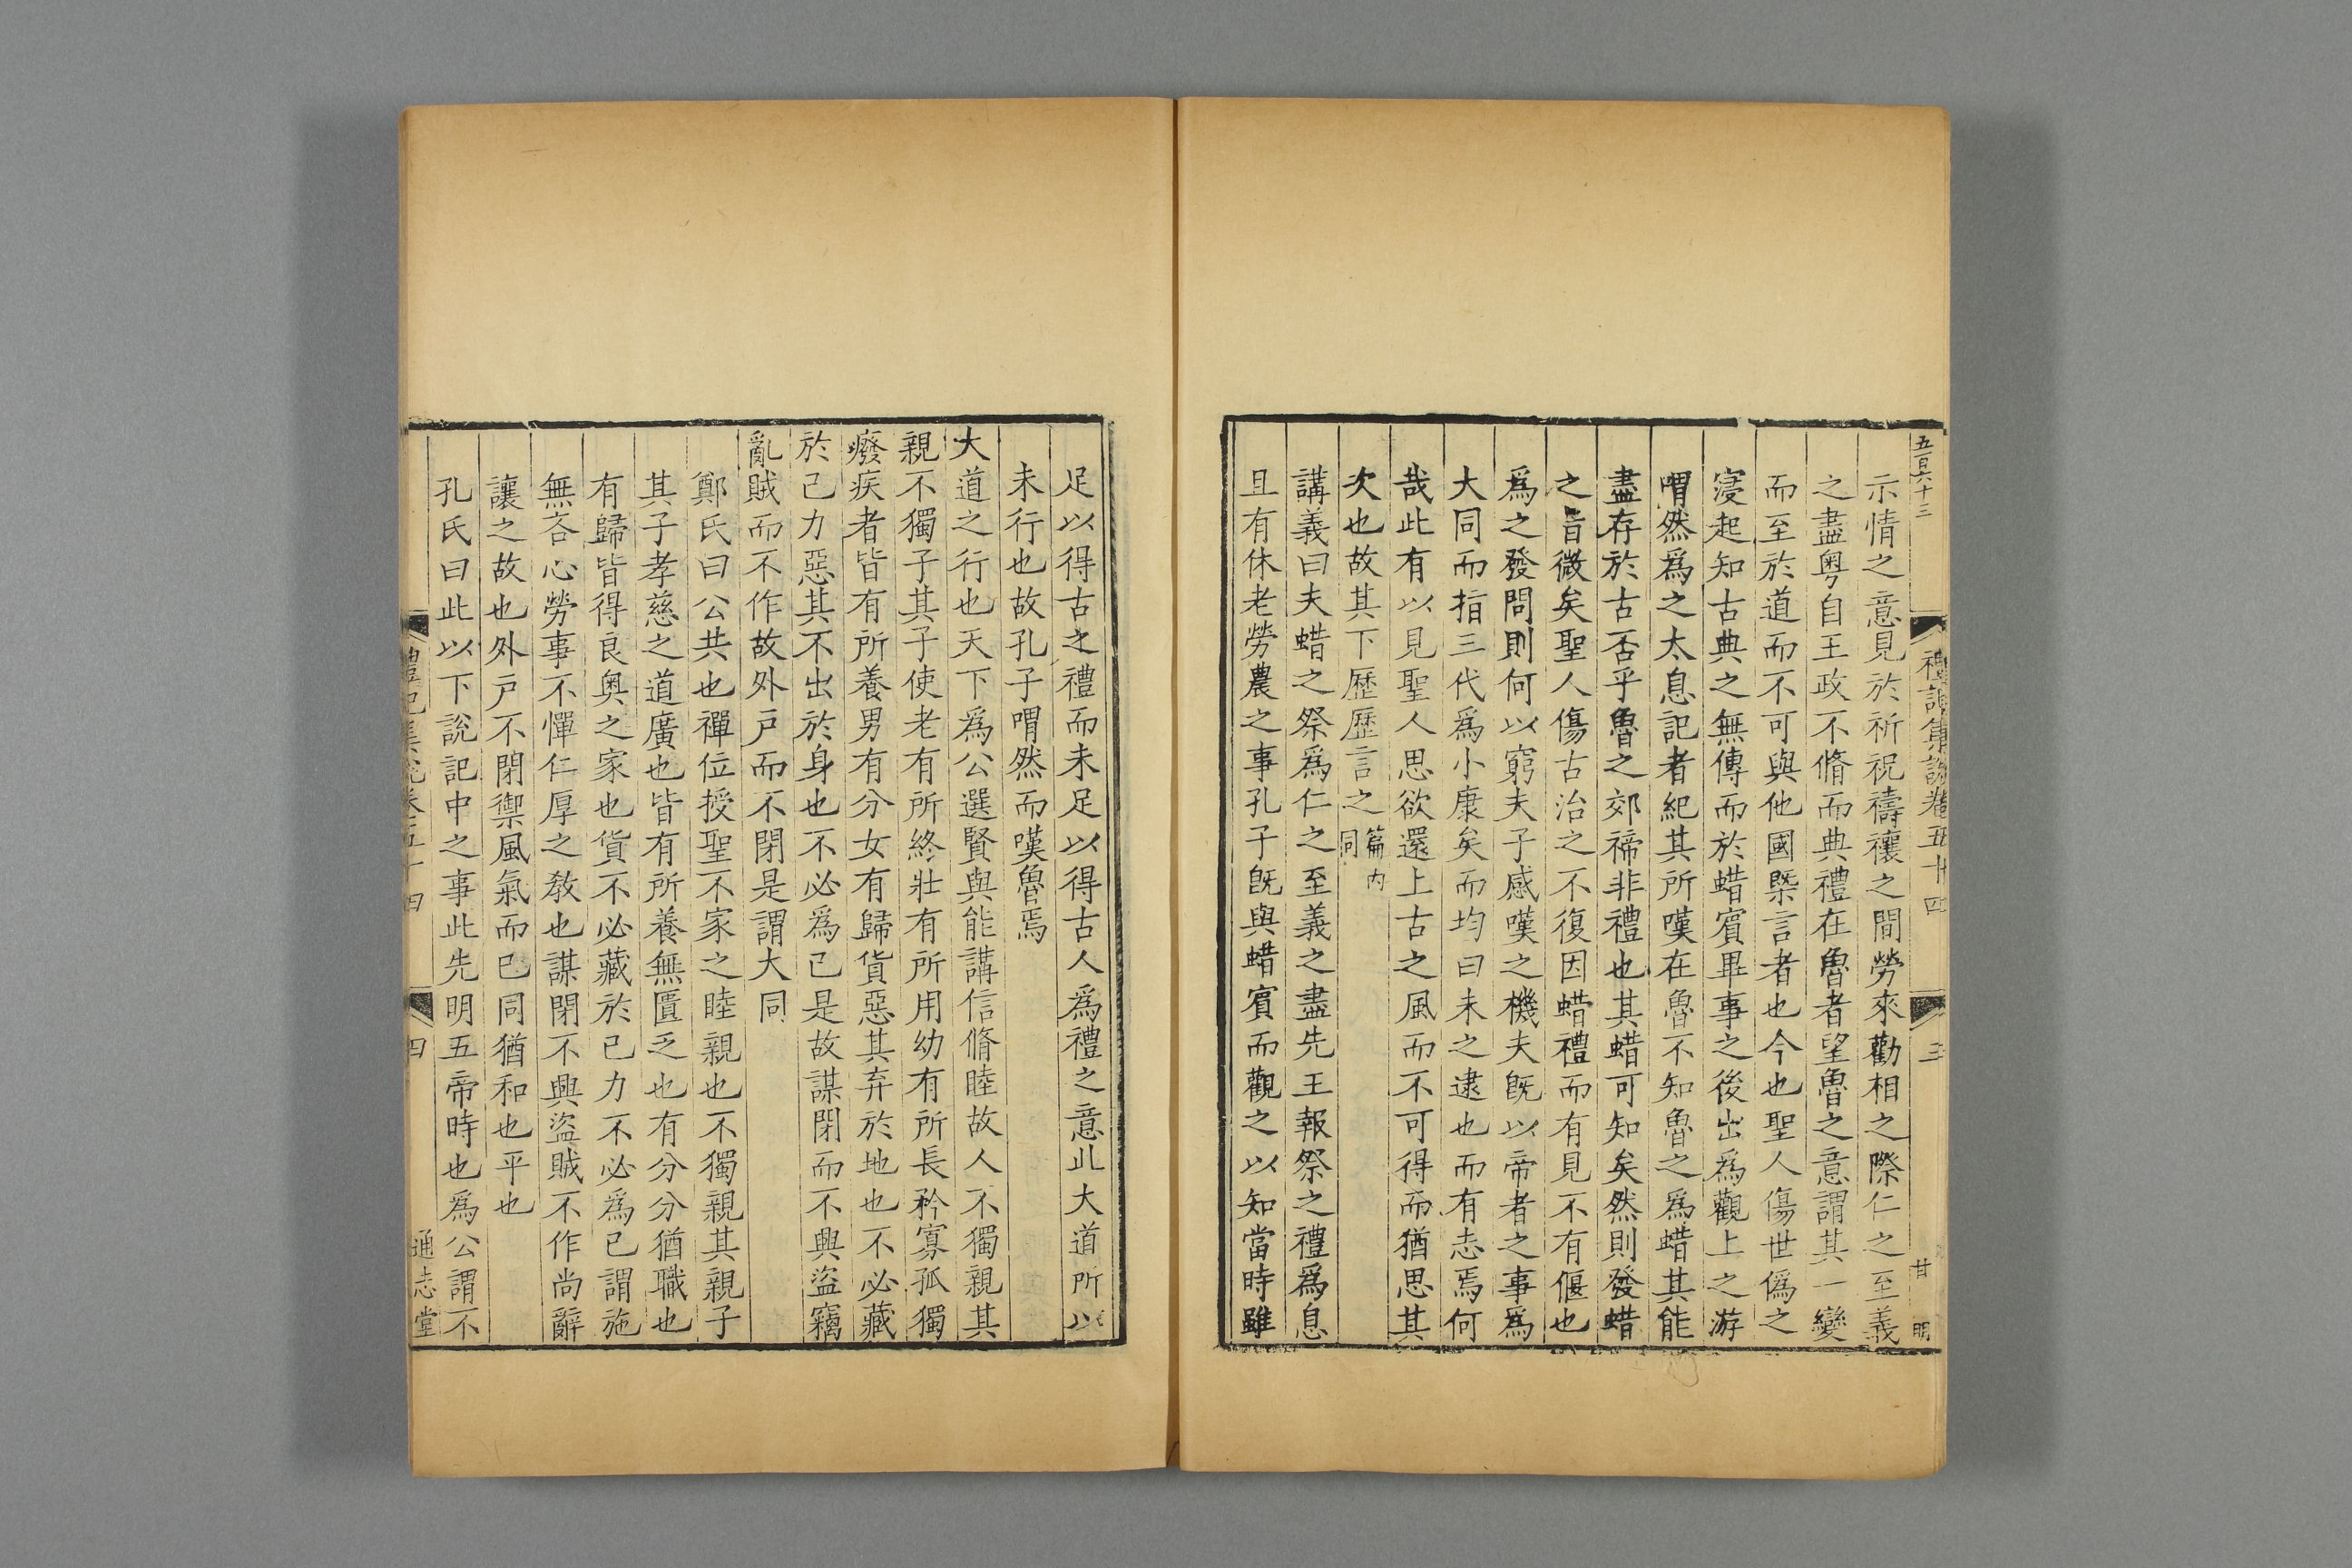 五百六十三
禮記集說卷五十四
三
甘
明
示情之意見於祈祝禱禳之間勞來勸相之際仁之至義
之盡粤自王政不脩而典禮在魯者望魯之意謂其一變
而至於道而不可與他國槩言者也今也聖人傷世僞之
寖起知古典之無傳而於蜡賓畢事之後出爲觀上之游
喟然爲之太息記者紀其所嘆在魯不知魯之爲蜡其能
盡存於古否乎魯之郊禘非禮也其蜡可知矣然則發蜡
之旨微矣聖人傷古治之不復因蜡禮而有見不有偃也
爲之發問則何以窮夫子感嘆之機夫旣以帝者之事爲
大同而指三代爲小康矣而均曰未之逮也而有志焉何
哉此有以見聖人思欲還上古之風而不可得而猶思其
次也故其下歷歷言之篇内同
講義曰夫蜡之祭爲仁之至義之盡先王報祭之禮爲息
且有休老勞農之事孔子旣與蜡賓而觀之以知當時雖
足以得古之禮而未足以得古人爲禮之意此大道所以
未行也故孔子喟然而嘆魯焉
大道之行也天下爲公選賢與能講信脩睦故人不獨親其
親不獨子其子使老有所終壯有所用幼有所長矜寡孤獨
癈疾者皆有所養男有分女有歸貨惡其弃於地也不必藏
於己力惡其不出於身也不必爲己是故謀閉而不興盜竊
亂賊而不作故外戸而不閉是謂大同
鄭氏曰公共也禪位授聖不家之睦親也不獨親其親子
其子孝慈之道廣也皆有所養無匱乏也有分分猶職也
有歸皆得良奧之家也貨不必藏於己力不必爲己謂施
無吝心勞事不憚仁厚之教也謀閉不興盜賊不作尚辭
讓之故也外戸不閉禦風氣而已同猶和也平也
孔氏曰此以下說記中之事此先明五帝時也爲公謂不
禮記集說卷五十四
四
通志堂